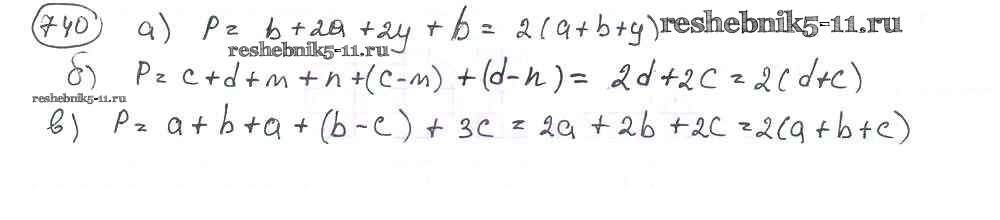 740 а) P = b + 2a + 2y + b = 2(a+b+y) reshebnik5-11.ru
reshebnik5-11.ru
б) P = c + d + m + n + (c-m) + (d-n) = 2d + 2c = 2(d+c)
reshebnik5-11.ru
в) P = a + b + a + (b-c) + 3c = 2a + 2b + 2c = 2(a+b+c)